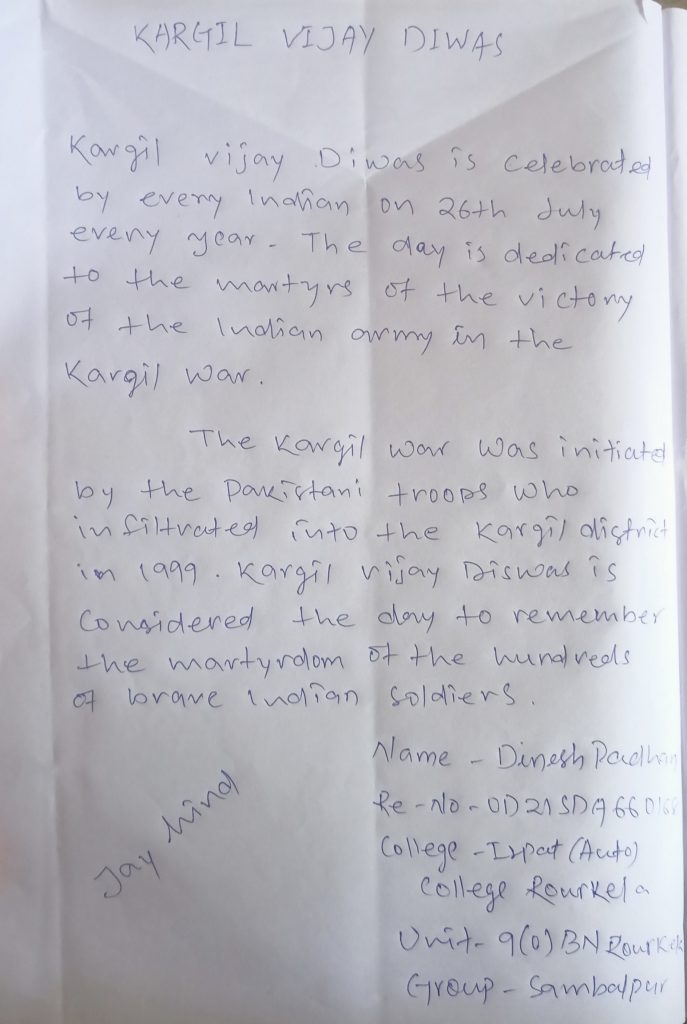 KARGIL VIJAY DIWAS
Kargil vijay Diwas is celebrated
by every Indian on 26th July
every year. The day is dedicated
to the martyrs of the victory
of the Indian army in the
Kargil war.
The Kargil war was initiated
by the Pakistani troops who
infiltrated into the Kargil district
in 1999. Kargil vijay Diswas is
Considered the day to remember
the martyrdom of the hundreds
of brave Indian soldiers.
Name - Dinesh Padhan
Re-No-OD21SDA660168
College - Ispat (Auto)
College Rourkela
Unit- 9(O) BN Rourkela
Group - Sambalpur
Jay hind